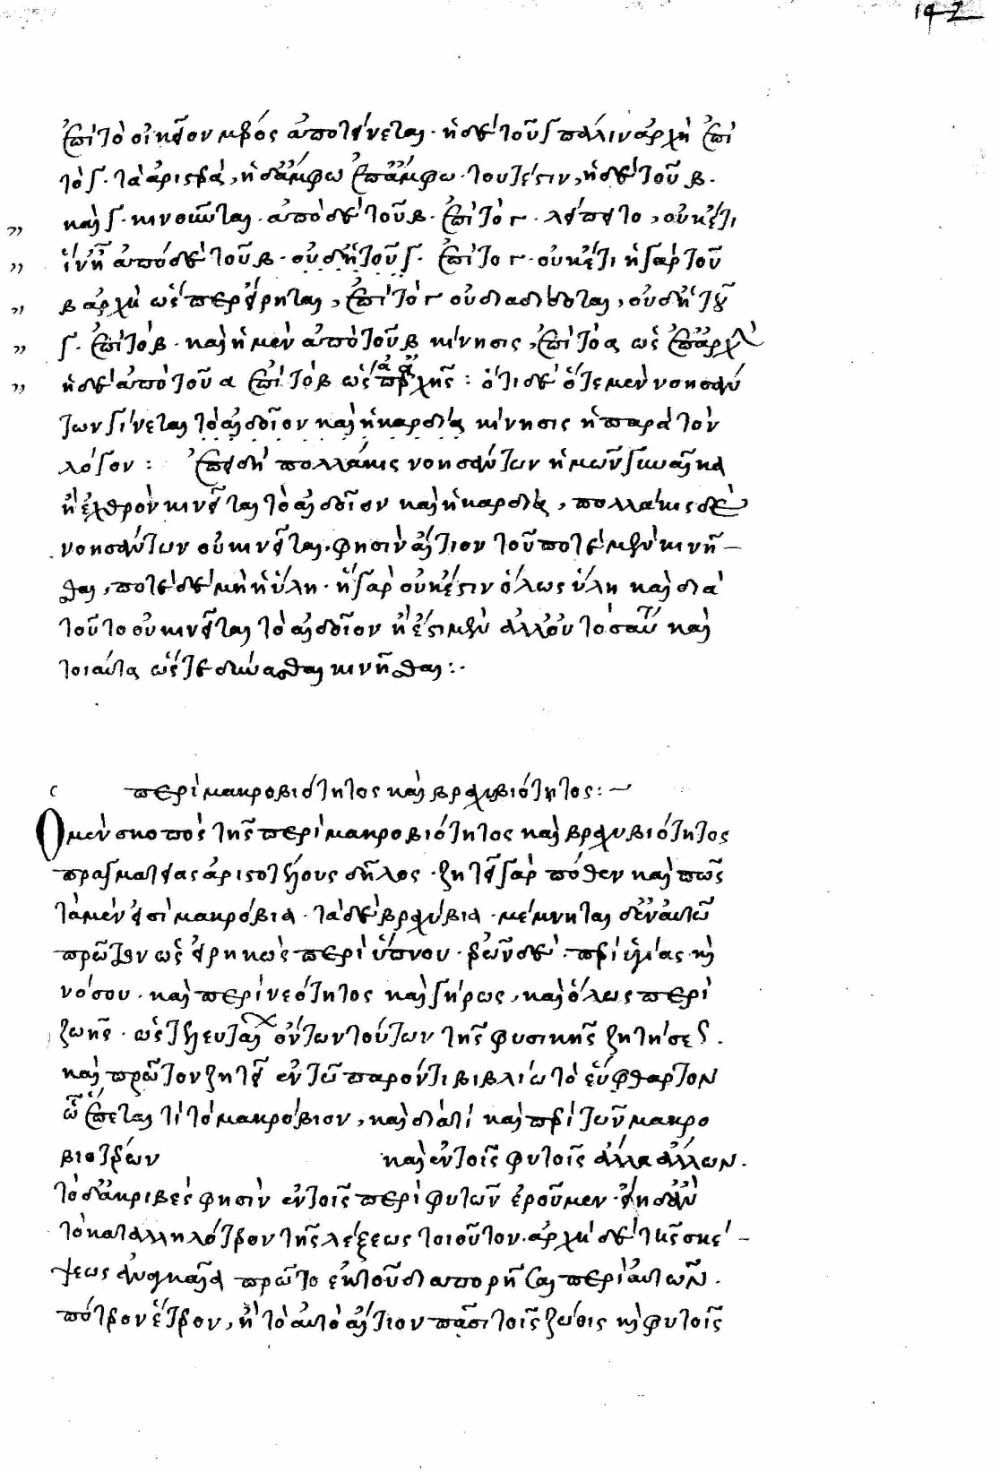 142
ἐπὶ τὸ οἰκεῖον μέρος ἀποτείνεται· ἡ δὲ τοῦ γ πάλιν ἀρχὴ ἐπὶ
τὸ γ· τὰ ἀριστερά, ἡ δ' ἄμφω ἐπ' ἄμφω· τουτέστιν, ἡ δὲ τοῦ β·
καὶ γ· κινοῦνται· ἀπὸ δὲ τοῦ β· ἐπὶ τὸ γ· λείπει τὸ, οὐκέτι
ἵν' ᾖ ἀπὸ δὲ τοῦ β· οὐδ' ἡ τοῦ γ· ἐπὶ τὸ γ· οὐκέτι ἡ γὰρ τοῦ
β ἀρχὴ ὥσπερ εἴρηται, ἐπὶ τὸ γ οὐ διαδίδοται, οὐδ' ἡ τοῦ
γ· ἐπὶ τὸ β· καὶ ἡ μὲν ἀπὸ τοῦ β κίνησις, ἐπὶ τὸ α ὡς ἐπ' ἀρχὴν
ἡ δὲ ἀπὸ τοῦ α ἐπὶ τὸ β ὡς ἀπ' ἀρχῆς: ὅτι δὲ ὁτὲ μὲν νοησάν
των γίνεται τὸ αἰδοῖον καὶ ἡ καρδία κίνησις ἡ παρὰ τὸν
λόγον: ἐπειδὴ πολλάκις νοησάντων ἡμῶν γυναῖκα
ἢ ἐχθρὸν κινεῖται τὸ αἰδοῖον καὶ ἡ καρδία, πολλάκις δὲ
νοησάντων οὐ κινεῖται, φησὶν αἴτιον τοῦ ποτὲ μὲν κινη-
θῆναι, ποτὲ δὲ μὴ ἡ ὕλη· ἢ γὰρ οὐκ ἔστιν ὅλως ὕλη καὶ διὰ
τοῦτο οὐ κινεῖται τὸ αἰδοῖον ἢ ἔστι μὲν ἀλλ' οὐ τοσαύτη καὶ
τοιαύτη ὥστε δύνασθαι κινηθῆναι:·
περὶ μακροβιότητος καὶ βραχυβιότητος:—
Ὁ μὲν σκοπὸς τῆς περὶ μακροβιότητος καὶ βραχυβιότητος
πραγματείας ἀριστοτέλους δῆλος· ζητεῖ γὰρ πόθεν καὶ πῶς
τὰ μέν εἰσι μακρόβια· τὰ δὲ βραχύβια· μέμνηται δ' ἐν αὐτῷ
πρῶτον ὡς εἰρηκὼς περὶ ὕπνου· ἐρῶν δὲ· περὶ ὑγιείας καὶ
νόσου· καὶ περὶ νεότητος καὶ γήρως, καὶ ὅλως περὶ
ζωῆς· ὡς τελευταίων ὄντων τούτων τῆς φυσικῆς ζητήσεως·
καὶ πρῶτον ζητεῖ ἐν τῷ παρόντι βιβλίῳ τὸ εὔφθαρτον
ᾧ ἕπεται τί τὸ μακρόβιον, καὶ διὰ τί καὶ περὶ τῶν μακρο
βιοτέρων καὶ ἐν τοῖς φυτοῖς ἀλλὰ ἄλλων.
τὸ δ' ἀκριβές φησιν ἐν τοῖς περὶ φυτῶν ἐροῦμεν· εἴη δ' ἂν
τὸ καταλληλότερον τῆς λέξεως τοιοῦτον· ἀρχὴ δὲ τῆς σκέ-
ψεως ἀναγκαία πρῶτο ἐκ τοῦ διαπορῆσαι περὶ αὐτῶν.
πότερον ἕτερον, ἢ τὸ αὐτὸ αἴτιον πᾶσι τοῖς ζῴοις καὶ φυτοῖς